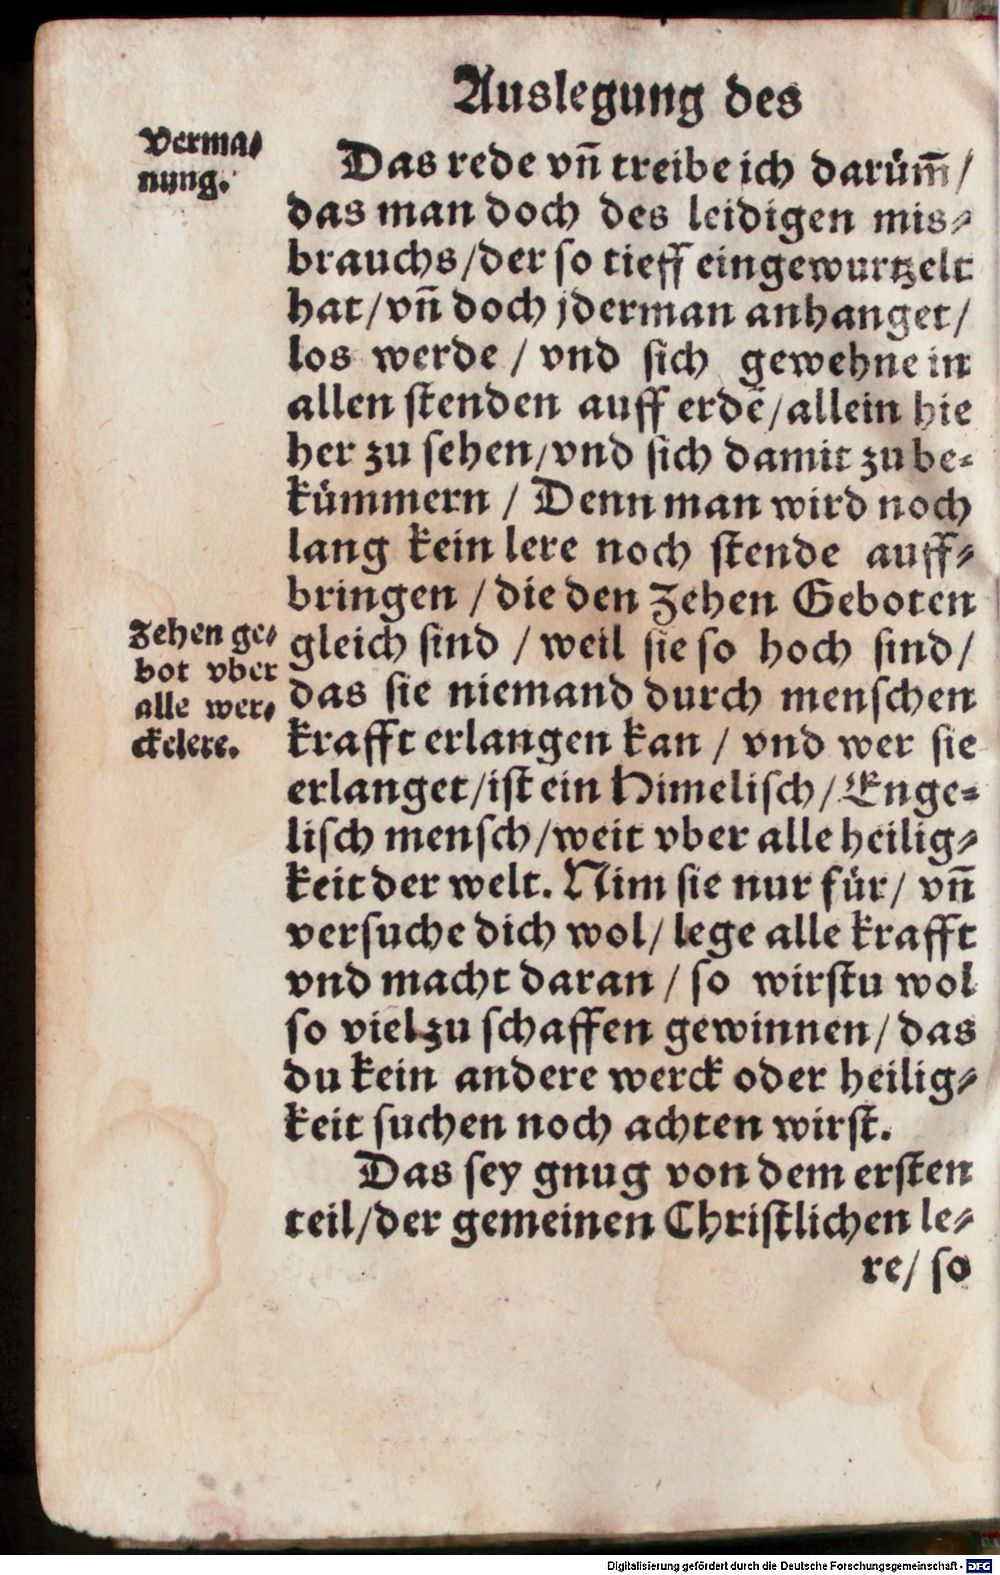 Auslegung des
Verma⸗
nung.
Das rede vn̄ treibe ich darüm̄/
das man doch des leidigen mis⸗
brauchs/der so tieff eingewurtzelt
hat/vn̄ doch jderman anhanget/
los werde / vnd sich gewehne in
allen stenden auff erdē/allein hie
her zu sehen/vnd sich damit zu be⸗
kümmern / Denn man wird noch
lang kein lere noch stende auff⸗
bringen / die den Zehen Geboten
Zehen ge⸗
bot vber
alle wer⸗
ckelere.
gleich sind / weil sie so hoch sind/
das sie niemand durch menschen
krafft erlangen kan / vnd wer sie
erlanget/ist ein Himelisch/Enge⸗
lisch mensch/weit vber alle heilig⸗
keit der welt. Nim sie nur für/ vn̄
versuche dich wol/ lege alle krafft
vnd macht daran / so wirstu wol
so viel zu schaffen gewinnen/das
du kein andere werck oder heilig⸗
keit suchen noch achten wirst.
Das sey gnug von dem ersten
teil/der gemeinen Christlichen le⸗
re/ so
Digitalisierung gefördert durch die Deutsche Forschungsgemeinschaft - DFG